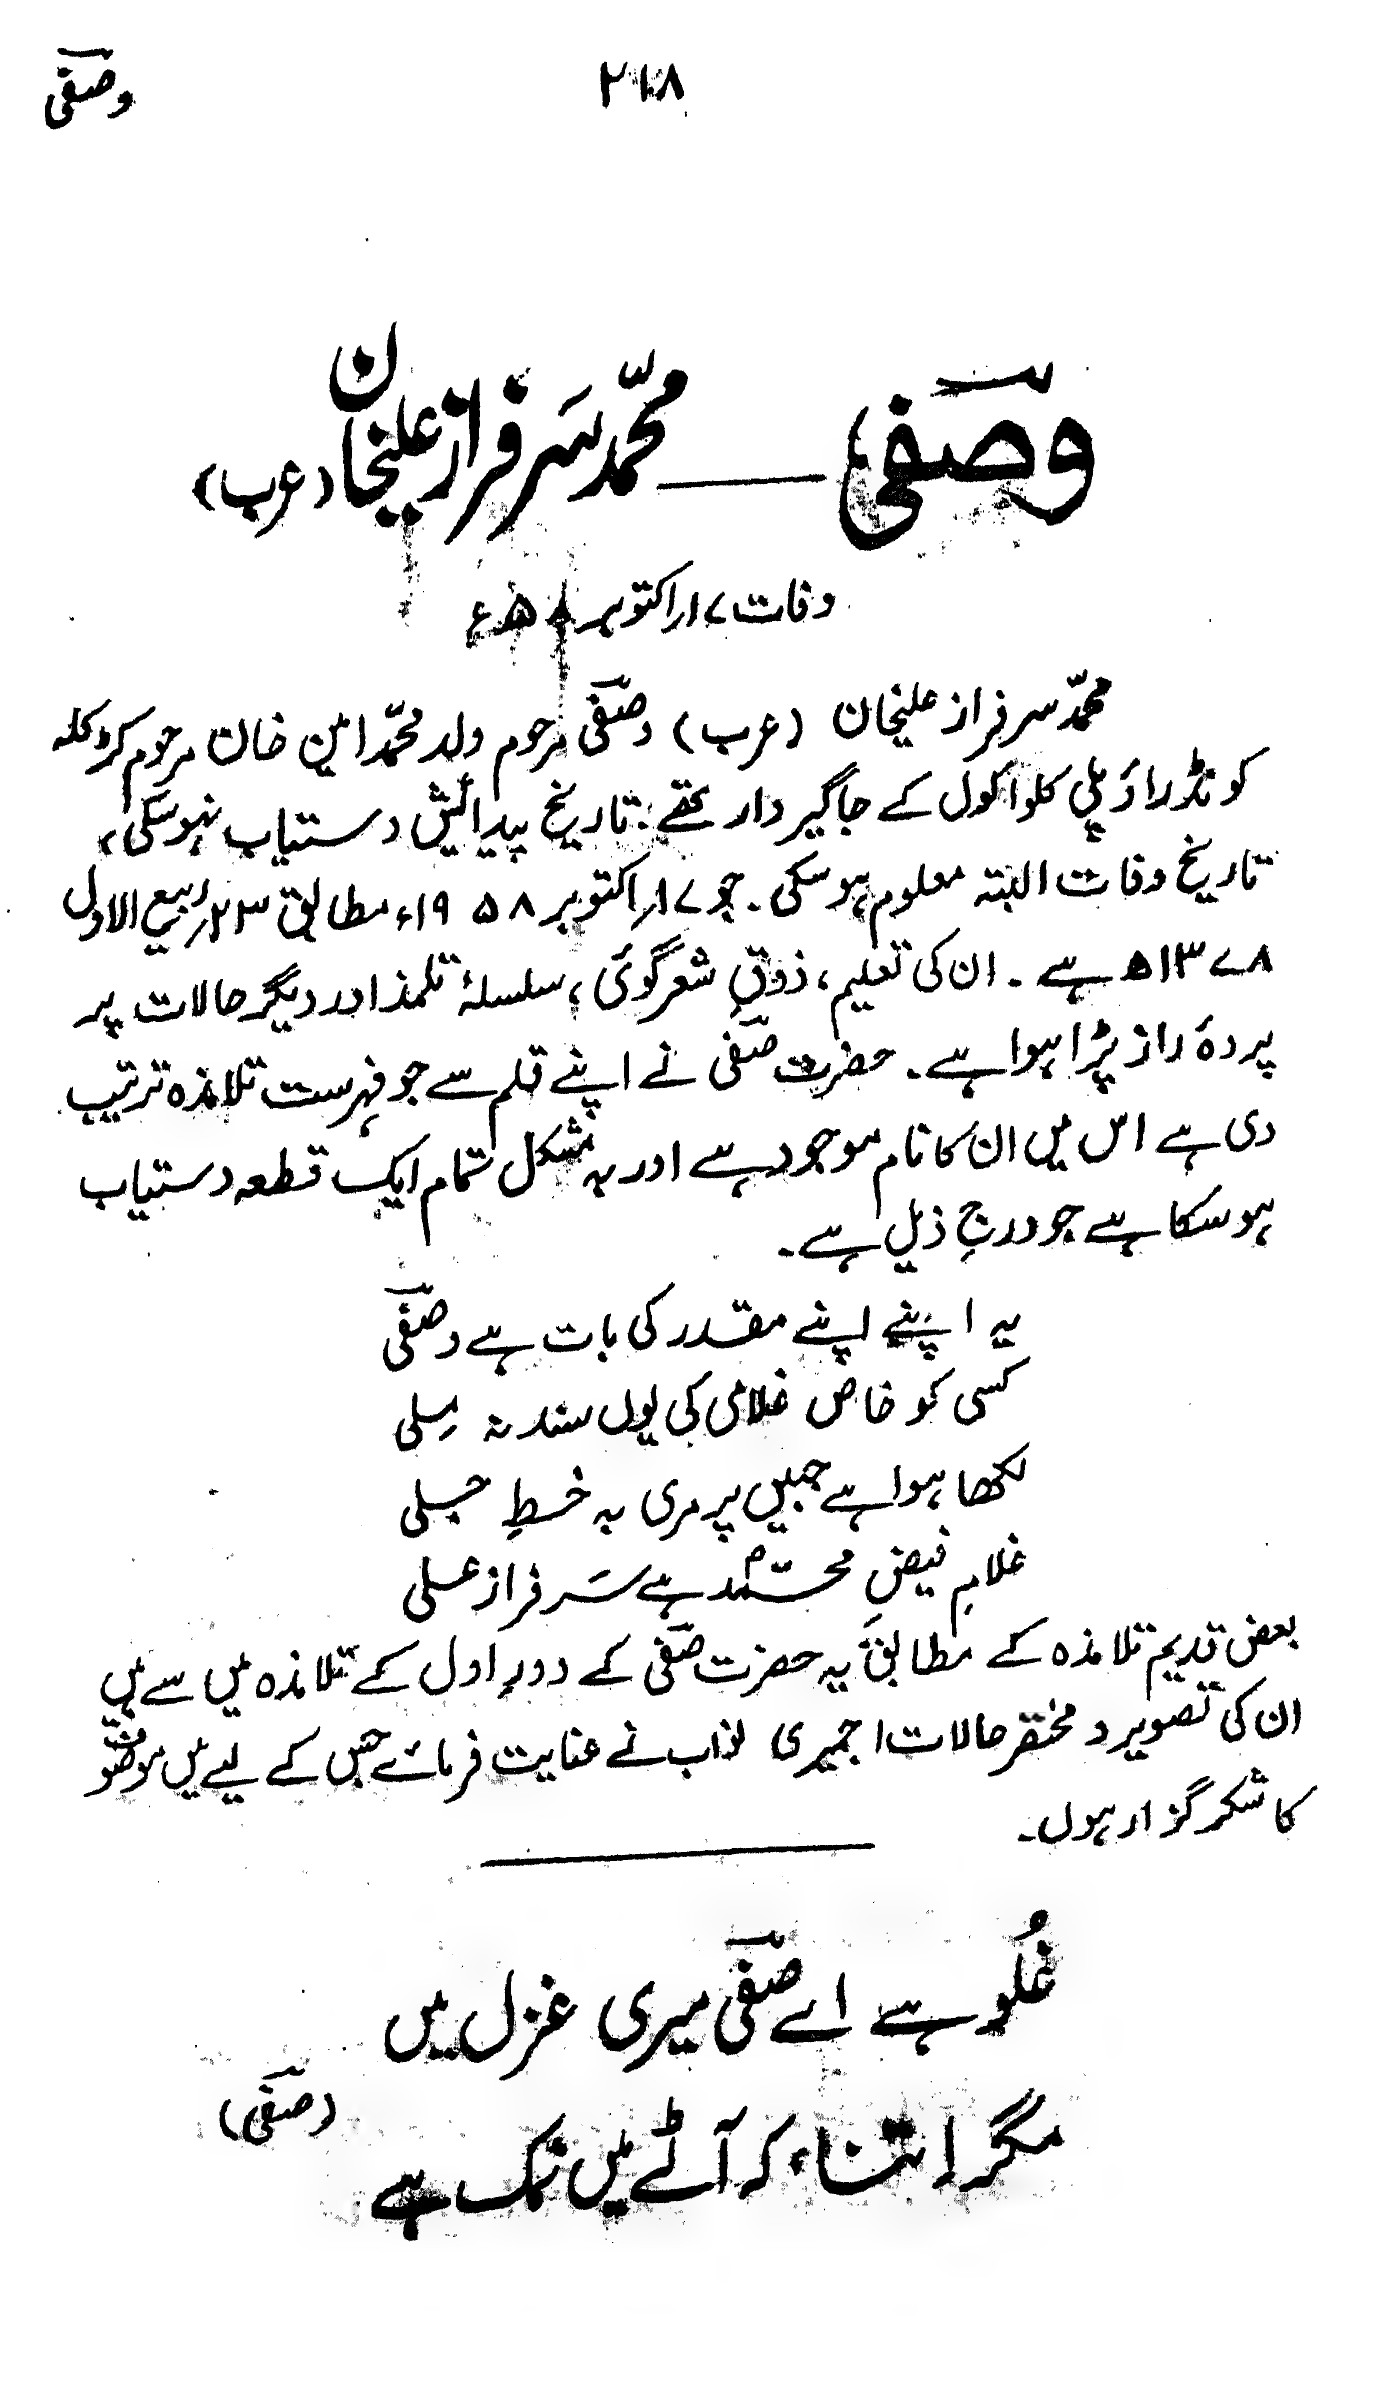 وصفیؔ
۲۱۸
وصفیؔ — محمّد سرفراز علیخان (عرب)
وفات ۱۷ر اکتوبر ۵۸ء
محمّد سرفراز علیخان (عرب) وصفیؔ مرحوم ولد محمّد امین خان مرحوم کروکلہ
کونڈراؤپلی کلواکول کے جاگیردار تھے۔ تاریخ پیدائش دستیاب نہوسکی،
تاریخ وفات البتہ معلوم ہوسکی۔ جو ۱۷ر اکتوبر ۱۹۵۸ء مطابق ۲۳ر ربیع الاول
۱۳۷۸ھ ہے۔ ان کی تعلیم، ذوقِ شعرگوئی، سلسلۂ تلمذ اور دیگر حالات پر
پردۂ راز پڑا ہوا ہے۔ حضرت صفیؔ نے اپنے قلم سے جو فہرست تلامذہ ترتیب
دی ہے اس میں ان کا نام موجود ہے اور بہ مشکل تمام ایک قطعہ دستیاب
ہوسکا ہے جو درجِ ذیل ہے۔
یہ اپنے اپنے مقدر کی بات ہے وصفیؔ
کسی کو خاص غلامی کی یوں سند نہ مِلی
لکھا ہوا ہے جبیں پر مری بہ خطِ جلی
غلامِ فیضِ محمّدؐ ہے سَرفراز علی
بعض قدیم تلامذہ کے مطابق یہ حضرت صفیؔ کے دورِ اول کے تلامذہ میں سے ہیں
ان کی تصویر و مختصر حالات اجمیری نواب نے عنایت فرمائے جس کے لیے میں موصوف
کا شکر گزار ہوں۔
غُلو ہے اے صفیؔ میری غزل میں
مگر اِتناء کہ آٹے میں نمک ہے
(صفیؔ)